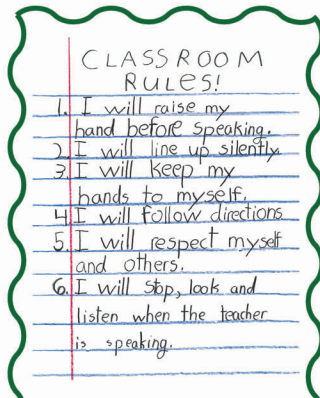 CLASSROOM
RULES!
1. I will raise my
hand before speaking.
2. I will line up silently
3. I will keep my
hands to myself.
4 I will follow directions
5. I will respect myself
and others.
6. I will stop, look and
listen when the teacher
is speaking.